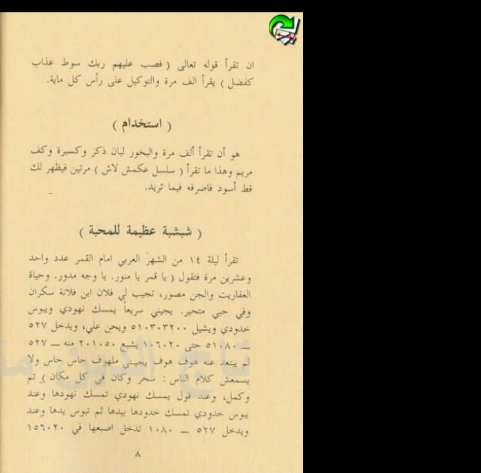 ان تقرأ قوله تعالى ( فصب عليهم ربك سوط عذاب
كفضل ) يقرأ الف مرة والتوكيل على رأس كل ماية.
( استخدام )
هو أن تقرأ ألف مرة والبخور لبان ذكر وكسبرة وكف
مريم وهذا ما تقرأ ( سلسل عكمش لاش ) مرتين فيظهر لك
قط أسود فاصرفه فيما تريد.
( شبشبة عظيمة للمحبة )
تقرأ ليلة ١٤ من الشهر العربي امام القمر عدد واحد
وعشرين مرة فتقول ( يا قمر يا منور. يا وجه مدور. وحياة
العفاريت والجن مصور، تجيب لي فلان ابن فلانة سكران
وفي حبي متحير. يجيني سريعاً يمسك نهودي ويبوس
خدودي ويشيل ٥١٠٣٠٣٢٠٠ ويحن علي، ويدخل ٥٢٧
— ٥١٠٨٠ حتى ١٠٦٠٢٠ يشبع ٢٠١٠٥٠ منه — ٥٢٧
لم يبتعد عنه هوف هوف يجيني ملهوف حاس حاس ولا
يسمعش كلام الناس : سحر وكان في كل مكان ) ثم
وكمل، وعند قول يمسك نهودي تمسك نهودها وعند
يبوس خدودي تمسك خدودها بيدها ثم تبوس يدها وعند
ويدخل ٥٢٧ — ١٠٨٠ تدخل اصبعها في ١٥٦٠٢٠
٨